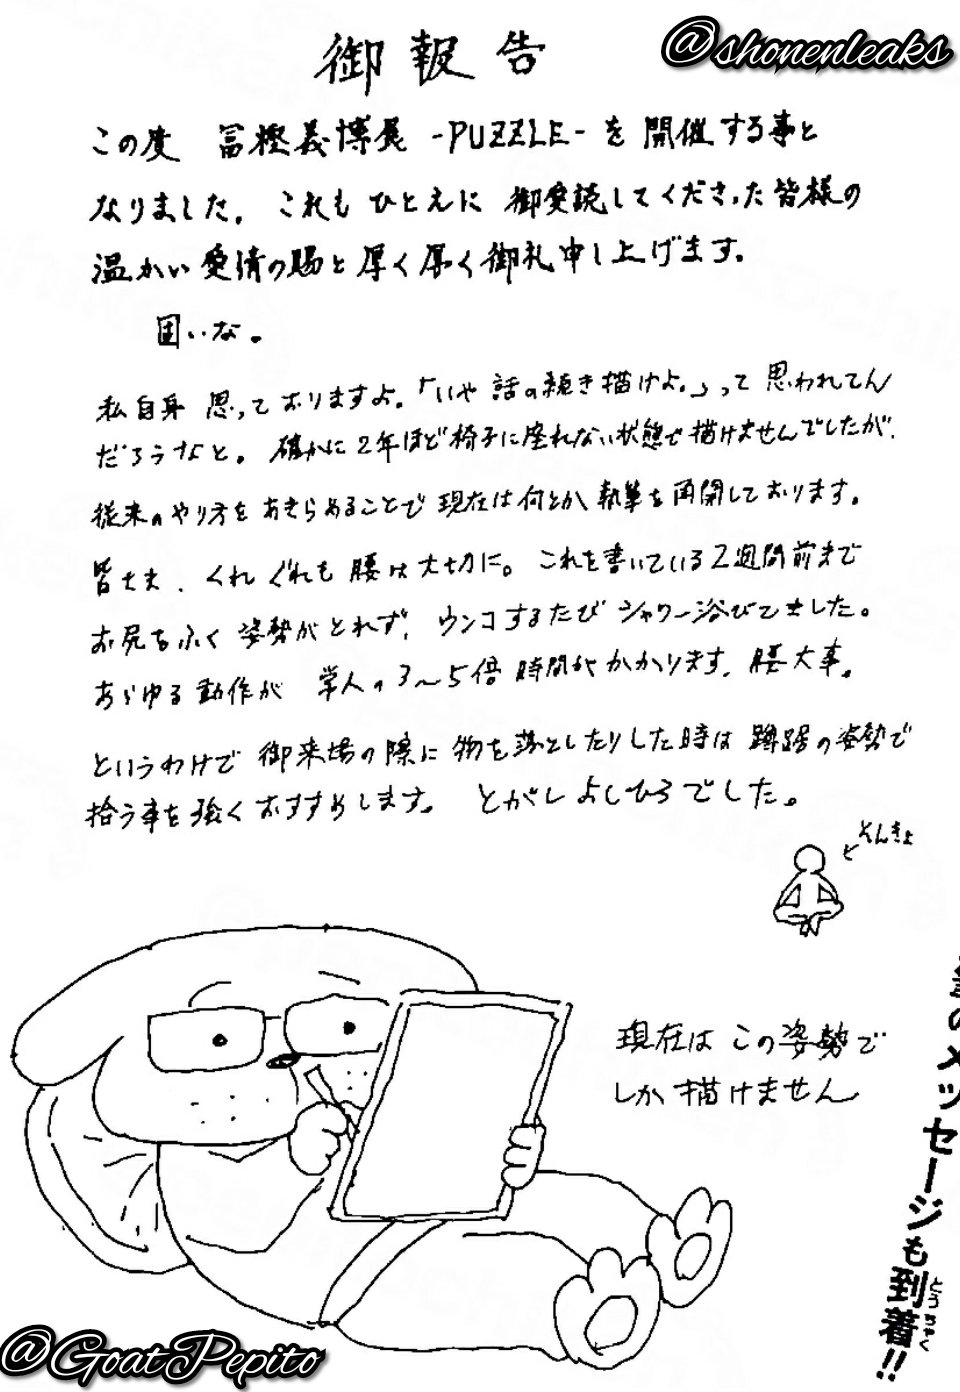 @shonenleaks
御報告
この度 冨樫義博展 -PUZZLE- を開催する事と
なりました。これもひとえに 御愛読してくださった皆様の
温かい愛情の賜と厚く厚く御礼申し上げます。
固いな。
私自身 思っておりますよ。「いや 話の続き描けよ。」って思われてん
だろうなと。確かに2年ほど椅子に座れない状態で描けませんでしたが、
従来のやり方をあきらめることで現在は何とか執筆を再開しております。
皆さま、くれぐれも腰は大切に。これを書いている2週間前まで
お尻をふく姿勢がとれず、ウンコするたびシャワー浴びてました。
あらゆる動作が 常人の3〜5倍時間がかかります。腰大事。
というわけで御来場の際に物を落としたりした時は蹲踞の姿勢で
拾う事を強くおすすめします。 とがしよしひろでした。
そんきょ
現在はこの姿勢で
しか描けません
のメッセージも到着!!
とうちゃく
@GoatPepito